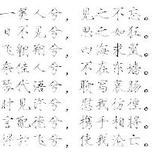 一美人兮，見之不忘。
日不見兮，思之如狂。
飛翱翔兮，四海求凰。
奈佳人兮，不在東牆。
琴代語兮，聊寫衷腸。
時見許兮，慰我彷徨。
言配德兮，攜手相將。
得於飛兮，使我淪亡。